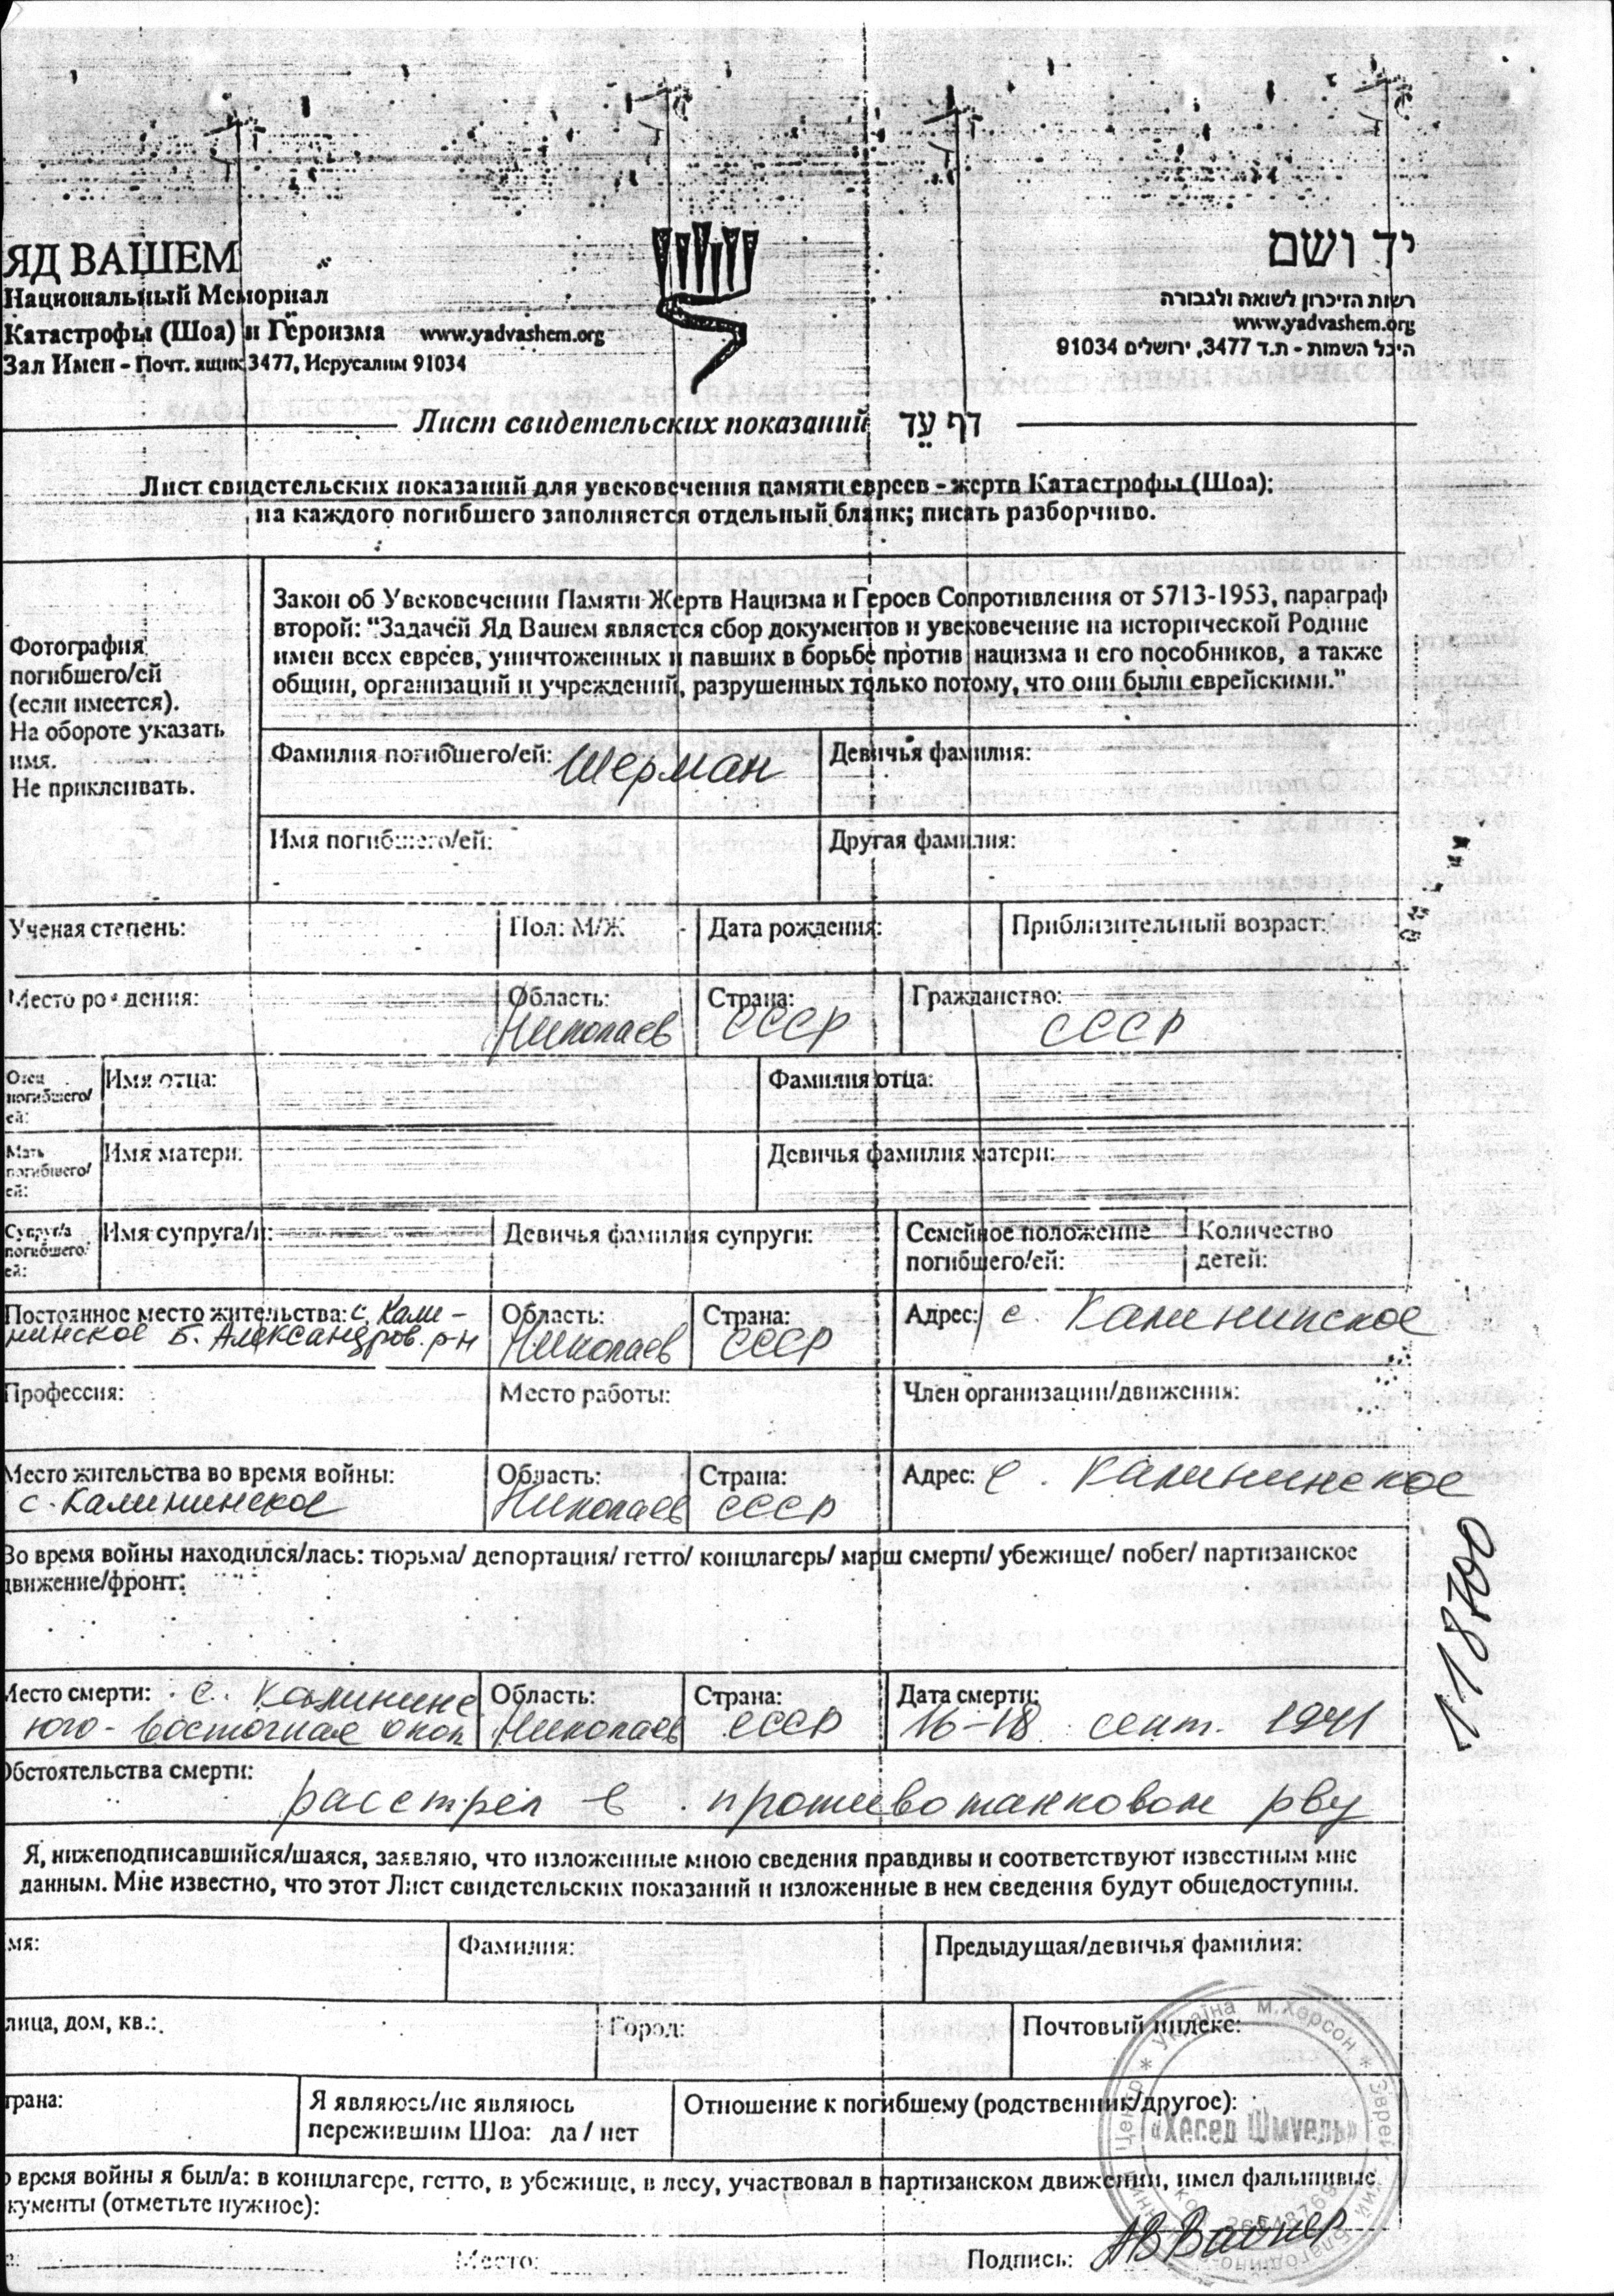 ЯД ВАШЕМ
Национальный Мемориал
Катастрофы (Шоа) и Героизма www.yadvashem.org
Зал Имен - Почт. ящик 3477, Иерусалим 91034
יד ושם
רשות הזיכרון לשואה ולגבורה
www.yadvashem.org
היכל השמות - ת.ד 3477, ירושלים 91034
Лист свидетельских показаний דף עֵד
Лист свидетельских показаний для увековечения памяти евреев - жертв Катастрофы (Шоа);
на каждого погибшего заполняется отдельный бланк; писать разборчиво.
Фотография
погибшего/ей
(если имеется).
На обороте указать
имя.
Не приклеивать.
Закон об Увековечении Памяти Жертв Нацизма и Героев Сопротивления от 5713-1953, параграф
второй: "Задачей Яд Вашем является сбор документов и увековечение на исторической Родине
имен всех евреев, уничтоженных и павших в борьбе против нацизма и его пособников, а также
общин, организаций и учреждений, разрушенных только потому, что они были еврейскими."
Фамилия погибшего/ей: Шерман Девичья фамилия:
Имя погибшего/ей: Другая фамилия:
Ученая степень: Пол: М/Ж Дата рождения: Приблизительный возраст:
Место рождения: Область: Страна: Гражданство:
Николаев СССР СССР
Отец погибшего/ей: Имя отца: Фамилия отца:
Мать погибшего/ей: Имя матери: Девичья фамилия матери:
Супруг/а погибшего/ей: Имя супруга/и: Девичья фамилия супруги: Семейное положение погибшего/ей: Количество детей:
Постоянное место жительства: с. Кали- Область: Страна: Адрес: с. Калининское
нинское Б. Александров. р-н Николаев СССР
Профессия: Место работы: Член организации/движения:
Место жительства во время войны: Область: Страна: Адрес: с. Калининское
с. Калининское Николаев СССР
Во время войны находился/лась: тюрьма/ депортация/ гетто/ концлагерь/ марш смерти/ убежище/ побег/ партизанское
движение/фронт:
118700
Место смерти: с. Калининс Область: Страна: Дата смерти:
юго-восточная окол Николаев СССР 16-18 сент. 1941
Обстоятельства смерти:
расстрел в противотанковом рву
Я, нижеподписавшийся/шаяся, заявляю, что изложенные мною сведения правдивы и соответствуют известным мне
данным. Мне известно, что этот Лист свидетельских показаний и изложенные в нем сведения будут общедоступны.
мя: Фамилия: Предыдущая/девичья фамилия:
лица, дом, кв.: Город: Почтовый индекс:
трана: Я являюсь/не являюсь Отношение к погибшему (родственник/другое):
пережившим Шоа: да / нет
время войны я был/а: в концлагере, гетто, в убежище, в лесу, участвовал в партизанском движении, имел фальшивые
кументы (отметьте нужное):
Место: Подпись: АВВайнер
Україна м.Херсон
«Хесед Шмуель»